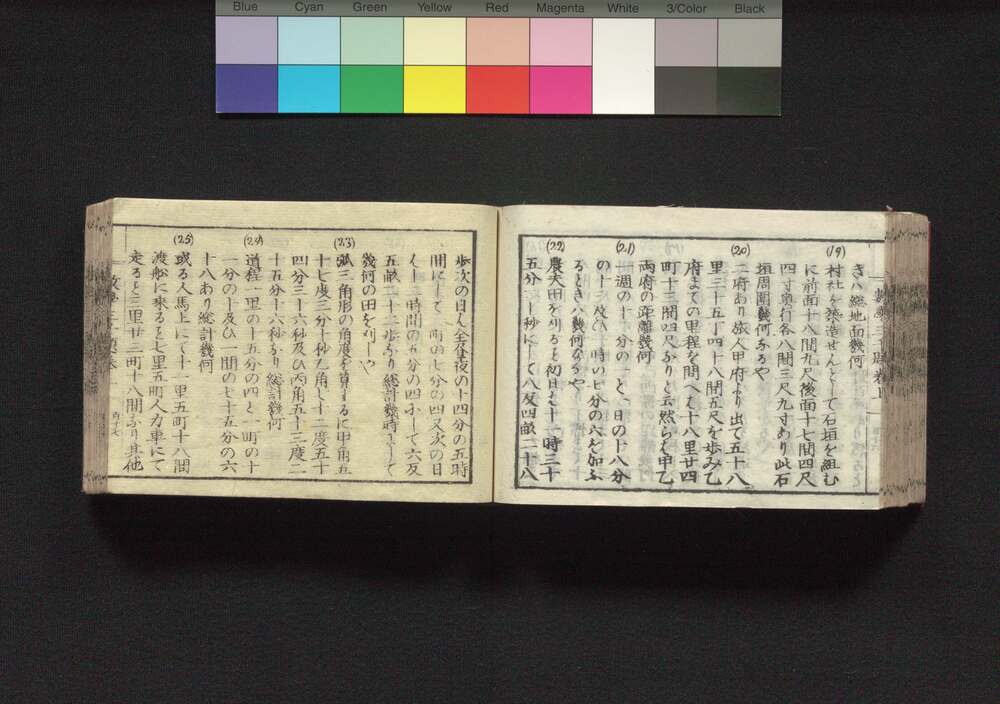 Blue Cyan Green Yellow Red Magenta White 3/Color Black
きハ総地面幾何
(19)
村社を築造せんとして石垣を組む
に前面十八間九尺後面十七間四尺
四寸奥行各八間三尺九寸あり此石
垣周囲幾何なるや
(20)
二府あり旅人甲府より出て五十八
里三十五丁四十八間五尺を歩み乙
府まての里程を問へは十八里廿四
町十三間四尺ありと云然らは甲乙
両府の距離幾何
(21)
一週の十一分の一と一日の十八分
の十一及ひ一時の七分の六を加ふ
るときハ幾何なりや
(22)
農夫田を刈るを初日は十一時三十
五分二十秒にして八反四畝二十八
歩次の日は全昼夜の十四分の五時
間にして一町の七分の四又次の日
五畝二十二歩なり総計幾時にして
幾何の田を刈しや
(23)
弧三角形の角度を算するに甲角五
十七度三分十秒乙角七十二度五十
四分三十六秒及ひ丙角五十三度二
十五分十六秒なり総計幾何
(24)
道程一里の十五分の四と一町の十
一分の十及ひ一間の七十五分の六
十八あり総計幾何
(25)
或る人馬上にて十一里五町十八間
渡船に乗ると七里五町人力車にて
走ると三里廿三町十八間なり其他
百十七